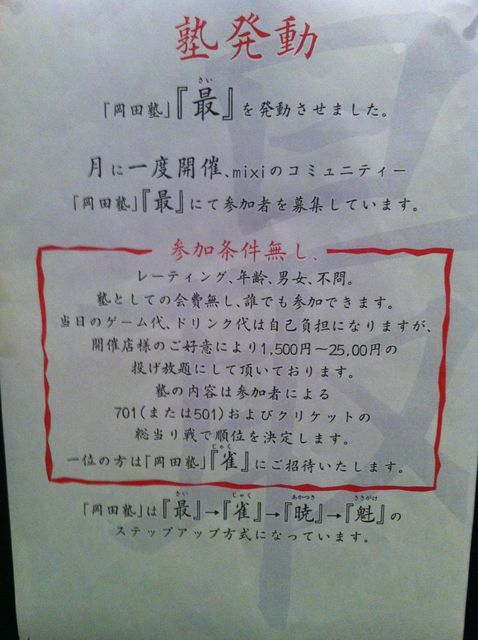 塾発動
「岡田塾」『最』を発動させました。
月に一度開催、mixiのコミュニティー
「岡田塾」『最』にて参加者を募集しています。
参加条件無し、
レーティング、年齢、男女、不問。
塾としての会費無し、誰でも参加できます。
当日のゲーム代、ドリンク代は自己負担になりますが、
開催店様のご好意により1,500円〜25,00円の
投げ放題にして頂いております。
塾の内容は参加者による
701(または501)およびクリケットの
総当り戦で順位を決定します。
一位の方は「岡田塾」『雀』にご招待いたします。
「岡田塾」は『最』→『雀』→『暁』→『魁』の
ステップアップ方式になっています。